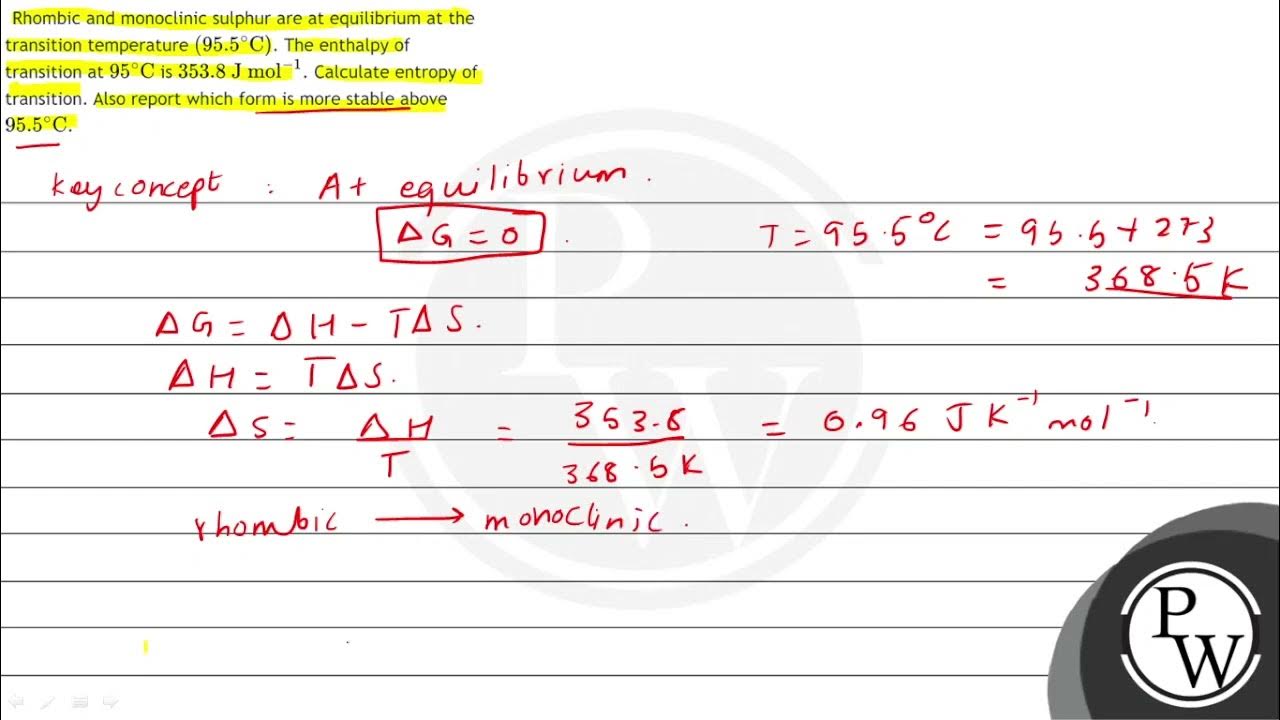 Rhombic and monoclinic sulphur are at equilibrium at the
transition temperature (95.5°C). The enthalpy of
transition at 95°C is 353.8 J mol⁻¹. Calculate entropy of
transition. Also report which form is more stable above
95.5°C.
Key concept : At equilibrium.
ΔG = 0.
T = 95.5°C = 95.5 + 273
= 368.5 K
ΔG = ΔH - TΔS.
ΔH = TΔS.
ΔS = ΔH / T = 353.8 / 368.5 K = 0.96 J K⁻¹ mol⁻¹.
rhombic → monoclinic.
P
W
P
W